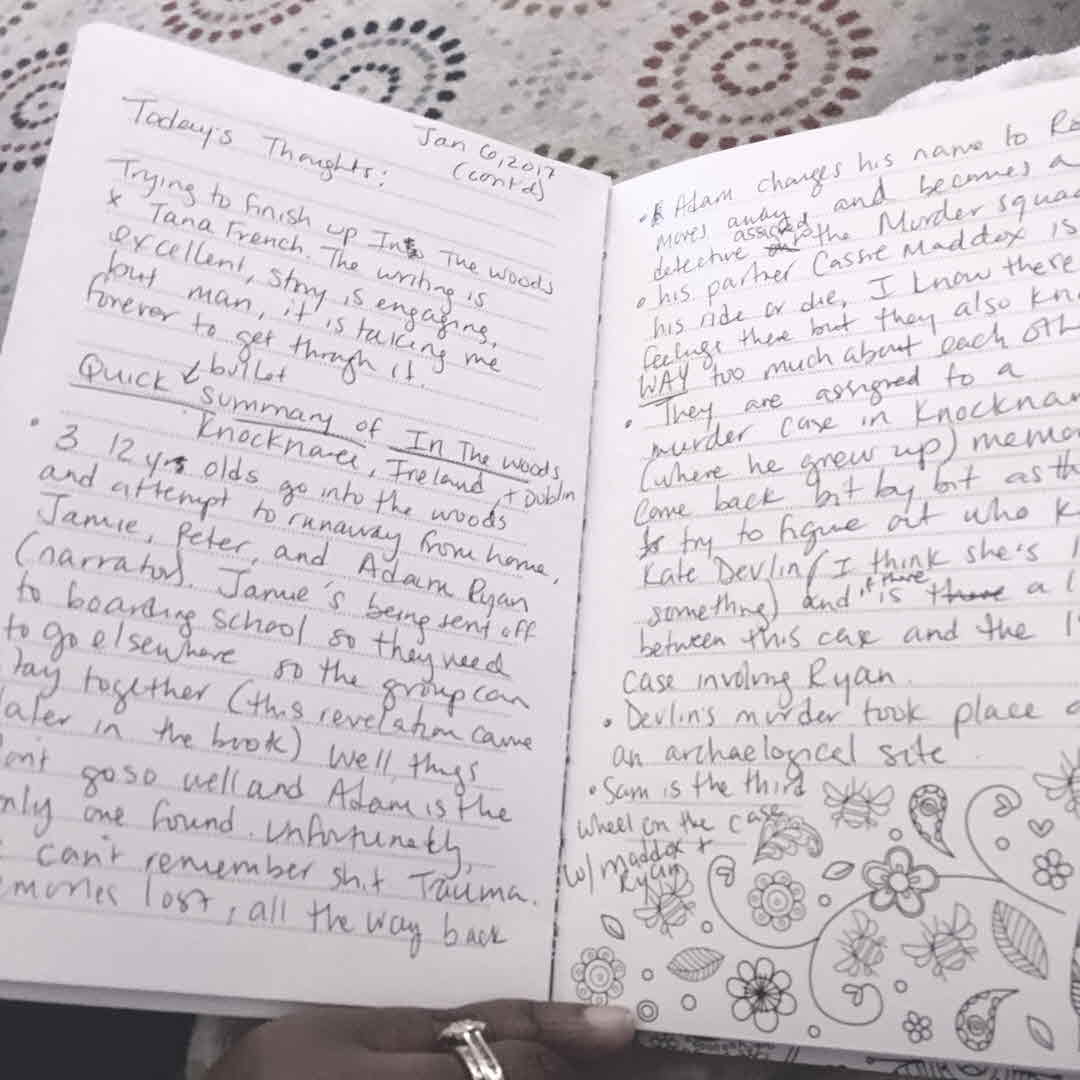 Today's Thoughts:
Jan 6, 2017
(cont'd)
Trying to finish up In The Woods
x Tana French. The writing is
excellent, story is engaging,
but man, it is taking me
forever to get through it.
Quick bullet summary of In The Woods
Knocknaree, Ireland, + Dublin
• 3 12 yrs olds go into the woods
and attempt to runaway from home,
Jamie, Peter, and Adam Ryan
(narrator). Jamie's being sent off
to boarding school so they need
to go elsewhere so the group can
tay together (this revelation came
later in the book) Well, things
on't go so well and Adam is the
nly one found. Unfortunately,
can't remember shit Trauma.
mories lost, all the way back
• Adam changes his name to Ro
moves away and becomes a
detective assigned to the Murder squa
• his partner Cassie Maddox is
his ride or die, I know there
feelings there but they also kn
WAY too much about each oth
• They are assigned to a
murder case in Knockna
(where he grew up) memo
come back bit by bit as th
try to figure out who k
Kate Devlin (I think she's 1
something) and if there is a l
between this case and the 1
case involving Ryan.
• Devlin's murder took place
an archaelogical site.
• Sam is the third
wheel on the case
w/ Maddox +
Ryan